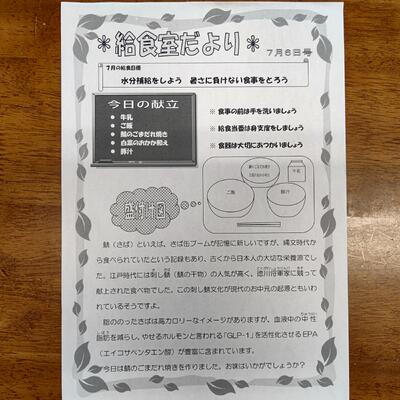 ＊給食室だより＊
7月6日号
7月の給食目標
水分補給をしよう 暑さに負けない食事をとろう
今日の献立
● 牛乳
● ご飯
● 鯖のごまだれ焼き
● 白菜のおかか和え
● 豚汁
※ 食事の前は手を洗いましょう
※ 給食当番は身支度をしましょう
※ 食器は大切にあつかいましょう
盛付け図
牛乳
ご飯
豚汁
鯖（さば）といえば、さば缶ブームが記憶に新しいですが、縄文時代か
ら食べられていたという記録もあり、古くから日本人の大切な栄養源でし
た。江戸時代には刺し鯖（鯖の干物）の人気が高く、徳川将軍家に競って
献上された食べ物でした。この刺し鯖文化が現代のお中元の起源ともいわ
れているそうですよ。
脂ののったさばは高カロリーなイメージがありますが、血液中の中性
脂肪を減らし、やせるホルモンと言われる「GLP-1」を活性化させるEPA
（エイコサペンタエン酸）が豊富に含まれています。
今日は鯖のごまだれ焼きを作りました。お味はいかがでしょうか？